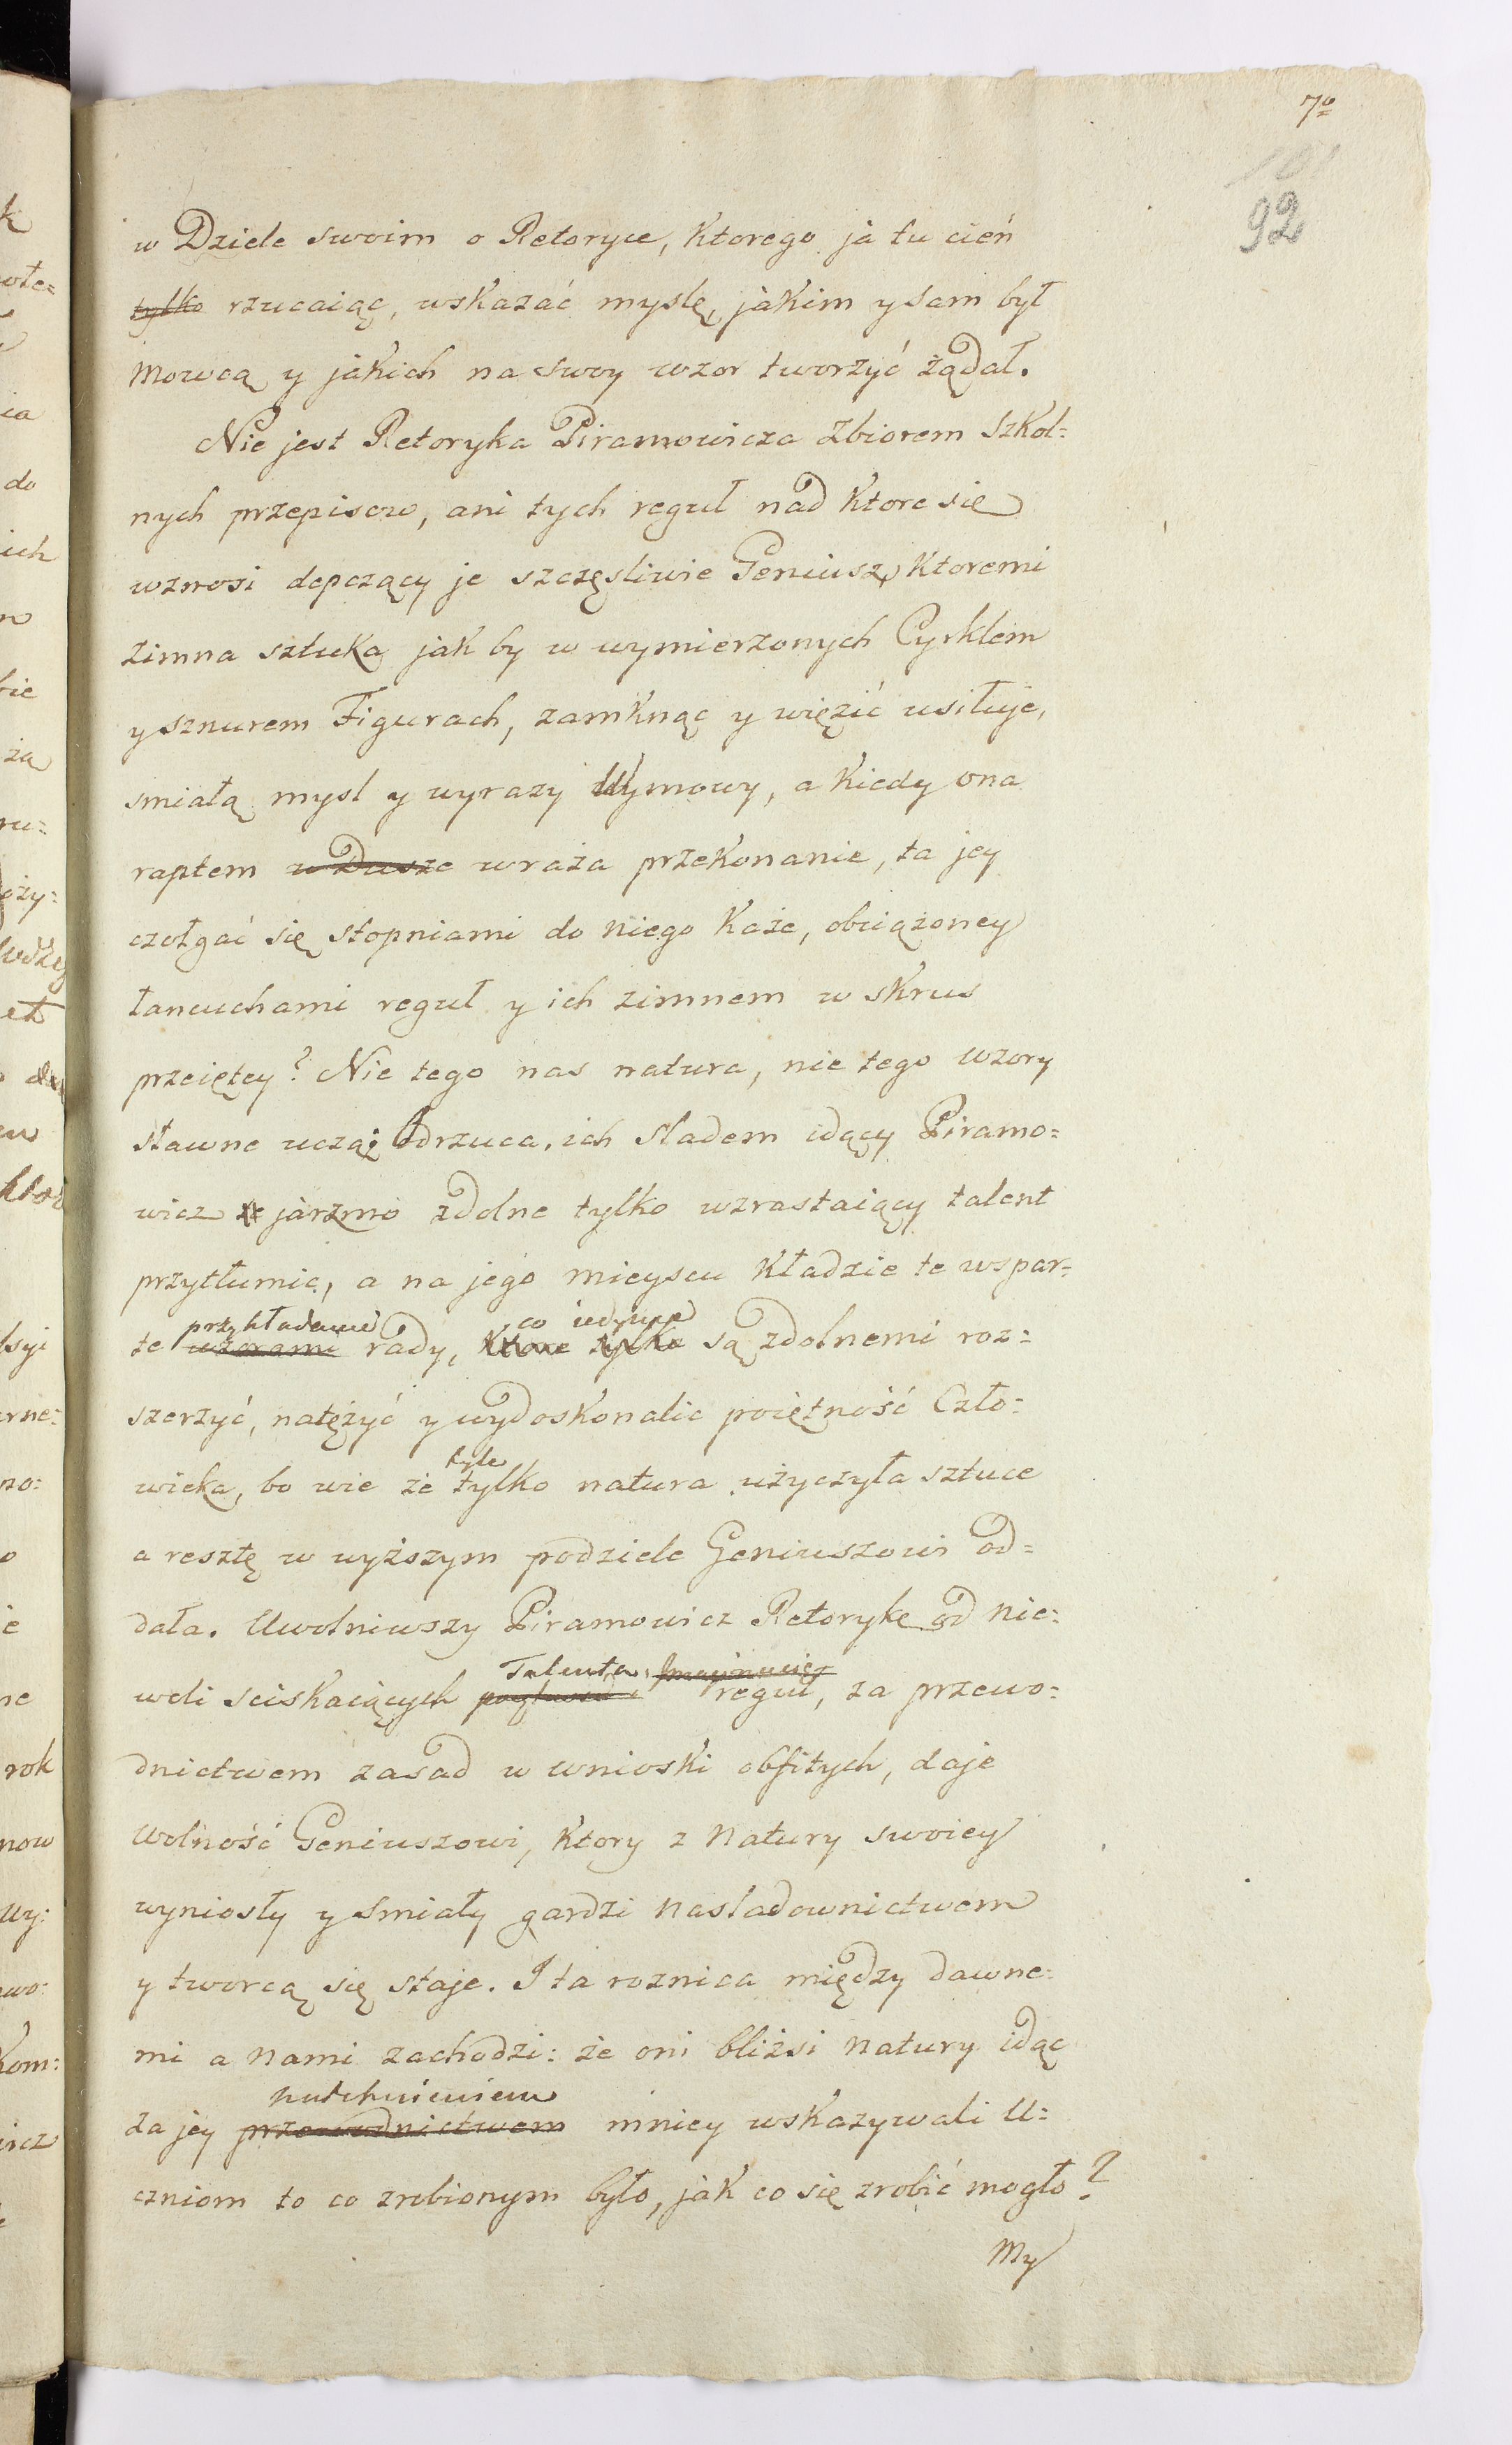 7º
101
92
w Dziele swoim o Retoryce, Ktorego ja tu cień
tylko rzucaiąc, wskazać myslę, jakim y sam był
Mowcą y jakich na swoy wzor tworzyć żądał.
Nie jest Retoryka Piramowicza Zbiorem Szkol=
nych przepisow, ani tych reguł nad Ktore się
wznosi depczący je szczęsliwie Geniusz, Ktoremi
zimna sztuka jak by w wymierzonych Cyrklem
y sznurem Figurach, zamknąć y więzić usiłuje,
smiałą mysl y wyrazy Wymowy, a Kiedy ona
raptem w Dusze wraża przekonanie, ta jey
czołgać się stopniami do niego Każe, obciążoney
łancuchami reguł y ich zimnem w skrus
przeiętey? Nie tego nas natura, nie tego wzory
sławne uczą; Odrzuca, ich sladem idący Piramo=
wicz te jarzmo zdolne tylko wzrastaiący talent
przytłumic, a na jego mieyscu Kładzie te wspar=
przykładami co iedynie
te wzorami rady, Ktore tylko są zdolnemi roz=
szerzyć, natężyć y wydoskonalic poiętność Czło=
tyle
wieka, bo wie że tylko natura użyczyła sztuce
a resztę w wyższym podziele Geniuszowi od=
dała. Uwolniwszy Piramowicz Retorykę od nie=
Talenta Imaginacię
woli sciskaiących reguł, za przewo=
dnictwem zasad w wnioski obfitych, daje
Wolność Geniuszowi, Ktory z Natury swoiey
wyniosły y smiały gardzi nasladownictwem
y tworcą się staje. I ta roznica między dawne=
mi a nami zachodzi: że oni bliżsi Natury idąc
natchnieniem
za jey przewodnictwem mniey wskazywali U=
czniom to co zrobionym było, jak co się zrobić mogło?
My